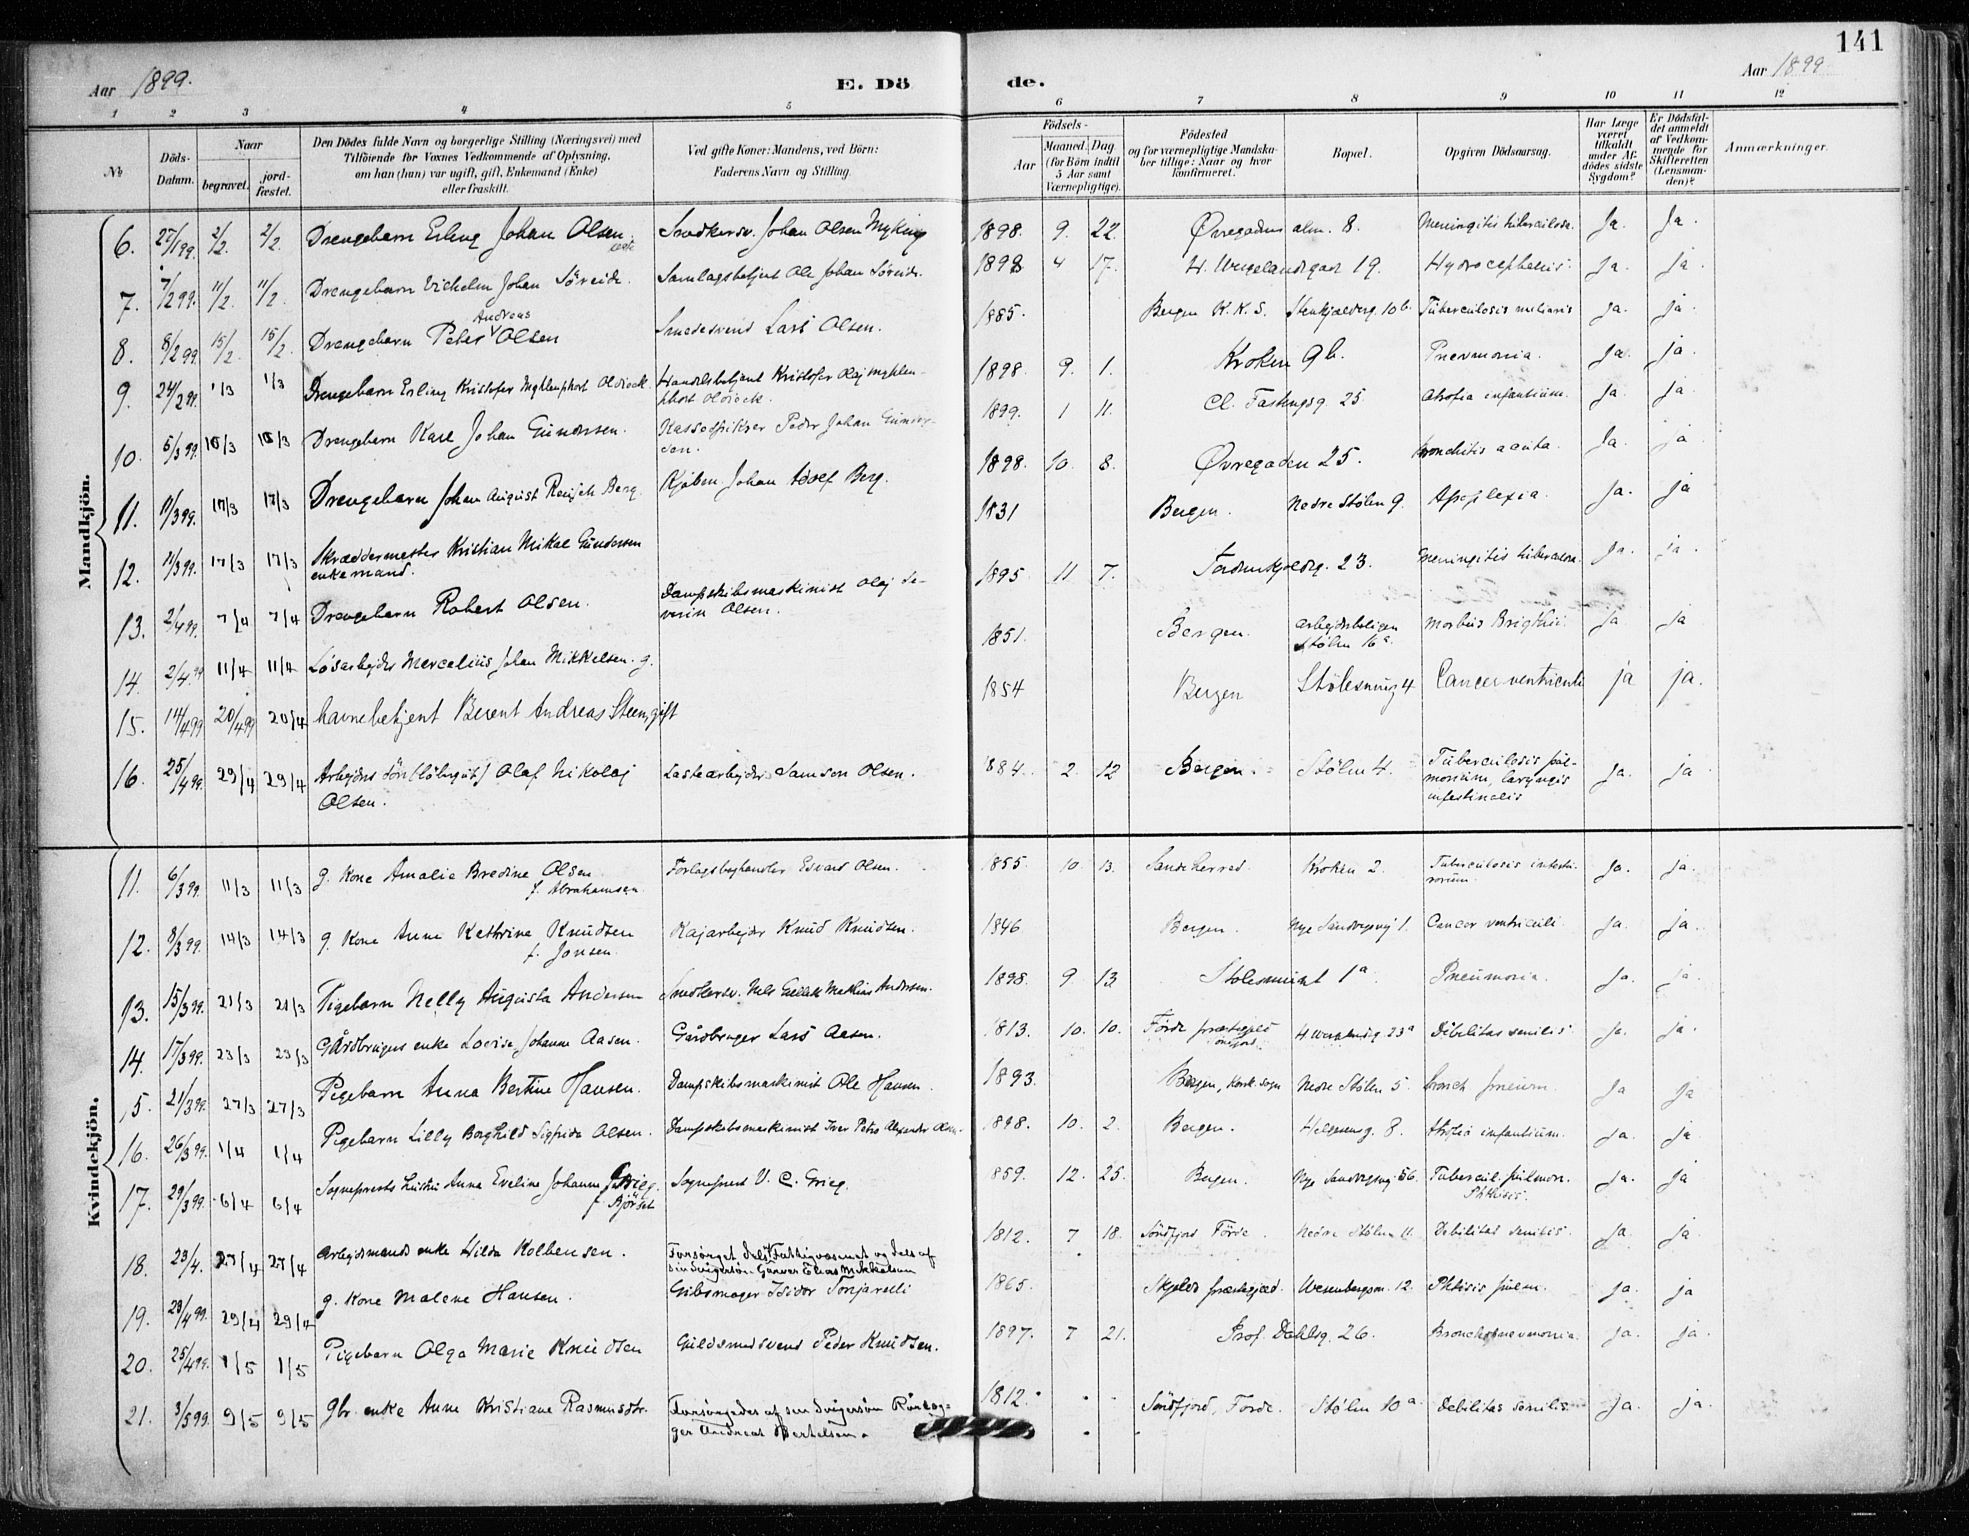 141
Aar 1899.
E. Dö de.
Aar 1899
1 2 3 4 5 6 7 8 9 10 11 12
No
Döds-Datum.
Naar
begravet.
jordfæstet.
Den Dödes fulde Navn og borgerlige Stilling (Næringsvei) med
Tilföiende for Voxnes Vedkommende af Oplysning,
om han (hun) var ugift, gift, Enkemand (Enke)
eller fraskilt.
Ved gifte Koner: Mandens, ved Börn:
Faderens Navn og Stilling.
Födsels-
Aar
Maaned. Dag
(for Börn indtil
5 Aar samt
Værnepligtige).
Födested
og for værnepligtige Mandska-
ber tillige: Naar og hvor
konfirmeret.
Bopæl.
Opgiven Dödsaarsag.
Har Læge
været
tilkaldt
under Af-
dödes sidste
Sygdom?
Er Dödsfal-
det anmeldt
af Vedkom-
mende for
Skifteretten
(Lensman-
den)?
Anmærkninger.
Mandkjön.
6. 27/1 99. 2/2. 2/2 Drengebarn Erling Johan Olsen Snedkersv. Johan Olsen Myking 1898. 9. 22. Øvregadens alm. 8. Meningitis tuberculosa. Ja. Ja.
7. 7/2 99. 11/2. 11/2. Drengebarn Vilhelm Johan Söreide. Samlagsbetjent Ole Johan Söreide. 1898 4 17. H. Wergelandsgade 19. Hydrocephalus. Ja. ja.
8. 8/2 99. 15/2. 15/2. Drengebarn Peter Andreas Olsen Smedesvend Lars Olsen. 1885. Bergen K. K. S. Stenkjælderg. 10b. Tuberculosis miliaris Ja. ja.
9. 24/2 99. 1/3 1/3 Drengebarn Erling Kristofer Myklenphort Oldieck Handelsbetjent Kristofer Olaj Myklen-
phort Oldieck. 1898. 9. 1. Kroken 9b. Pnevmonia. Ja. ja.
10. 5/3 99. 10/3 10/3 Drengebarn Kare Johan Gundersen. Peder Johan Gunder-
sen. 1899. 1 11. Cl. Fastingsg. 25 Atrofia infantium. Ja. ja
11. 11/3 99. 17/3 17/3 Drengebarn Johan August Reusch Berg. Kjöbm Johan Adolf Berg. 1898. 10. 8. Øvregaden 25. bronchitis acuta. Ja. ja
12. 11/3 99. 17/3 17/3 Skræddermester Kristian Mikal Gundersen
enkemand. 1831 Bergen. Nedre Stölen 9. Apoplexia. Ja. ja
13. 2/4 99. 7/4 7/4 Drengebarn Robert Olsen. Dampskibsmaskinist Olaj Se-
verin Olsen. 1895 11 7. 23. Meningitis tuberculosa Ja. ja.
14. 2/4 99 11/4 11/4 Lösarbejder Marcelius Johan Mikkelsen. g. 1851. Bergen. Arbejderboligen
Stölen 16a. Morbus Brightii. Ja ja
15. 14/4 99 20/4 99 20/4 havnebetjent Berent Andreas Steen, gift 1854 Bergen Stölesmug 4 Cancer ventriculi ja ja.
16. 25/4 99. 29/4 29/4 Arbejders Sön (löbegut) Olaf Nikolaj
Olsen. Lastearbejder Samson Olsen. 1884. 2. 12 Bergen. Stölen 4. Tuberculosis pul-
monum, laryngis
intestinalis Ja. ja
Kvindekjön.
11. 6/3 99. 11/3 11/3 g. Kone Amalie Bredine Olsen
f. Abrahamsen. Forlagsboghandler Edvard Olsen. 1855. 10. 13. Sandeherred. Kroken 2. Tuberculosis intesti-
norum. Ja. ja.
12. 8/3 99. 14/3 14/3 g. Kone Anne Kathrine Knudsen
f. Jonsen. Kajarbejder Knud Knudsen. 1846. Bergen. Nye Sandvigsvej 1. Cancer ventriculi. Ja. ja.
13. 15/3 99. 21/3 21/3 Pigebarn Nelly Augusta Andersen Snedkersv. Nils Mathias Andersen. 1898. 9 13 Stölesmuget 1a. Pneumonia. Ja. ja.
14. 17/3 99. 23/3 23/3 Gårdbrugers enke Lovise Johanne Aasen. Gårdbruger Lars Aasen. 1813. 10. 10. Förde præstegjeld
Söndfjord. H. 23a Debilitas senilis Ja. ja.
15. 21/3 99. 27/3 27/3 Pigebarn Anna Bertine Hansen. Dampskibsmaskinist Ole Hansen. 1893. Bergen, Korsk. sogn Nedre Stölen 5. bronch. pneum. Ja ja
16. 26/3 99. 1/4 1/4 Pigebarn Lilly Borghild Sigfrida Olsen. Dampskibsmaskinist Iver Petro Alexander Olsen. 1898. 10. 2. Bergen. Helgesensg. 8. Atrofia infantium. Ja. ja.
17. 29/3 99. 6/4 6/4 Sogneprests hustru Anna Eveline Johanne Grieg.
f. Björset Sogneprest V. C. Grieg. 859. 12. 25. Bergen. Nye Sandvigsvej 56. Tubercul. pulmon.
Phthisis. Ja. ja
18. 23/4. 27/4 27/4 Arbejdsmands enke Hilda Kolbensen. Forsörget dels af Fattigvæsenet og dels af
svigersön Elias Mikkelsen 1812. 7 18. Söndfjord Förde. Nedre Stölen 11. Debilitas senilis. Ja. ja
19. 23/4 99. 29/4 29/4 g. Kone Malene Hansen. Gibsmager Isidor Tonjarelli 1865. Skjold præstegjeld. Wesenbergsm. 12. Phtisis pulm. Ja. ja
20. 25/4 99. 1/5 1/5 Pigebarn Olga Marie Knudsen Guldsmedsvend Peder Knudsen. 1897. 7 21. Prof. Dahlsg. 26. Bronchopnevmonia. Ja. ja.
21. 3/5 99. 9/5 9/5 Gbr. enke Anne Kristiane Rasmusdtr. Forsørgedes af sin svigersøn
Andreas Bertelsen. 1812. Söndfjord, Förde. Stölen 10a Debilitas senilis. Ja. ja.